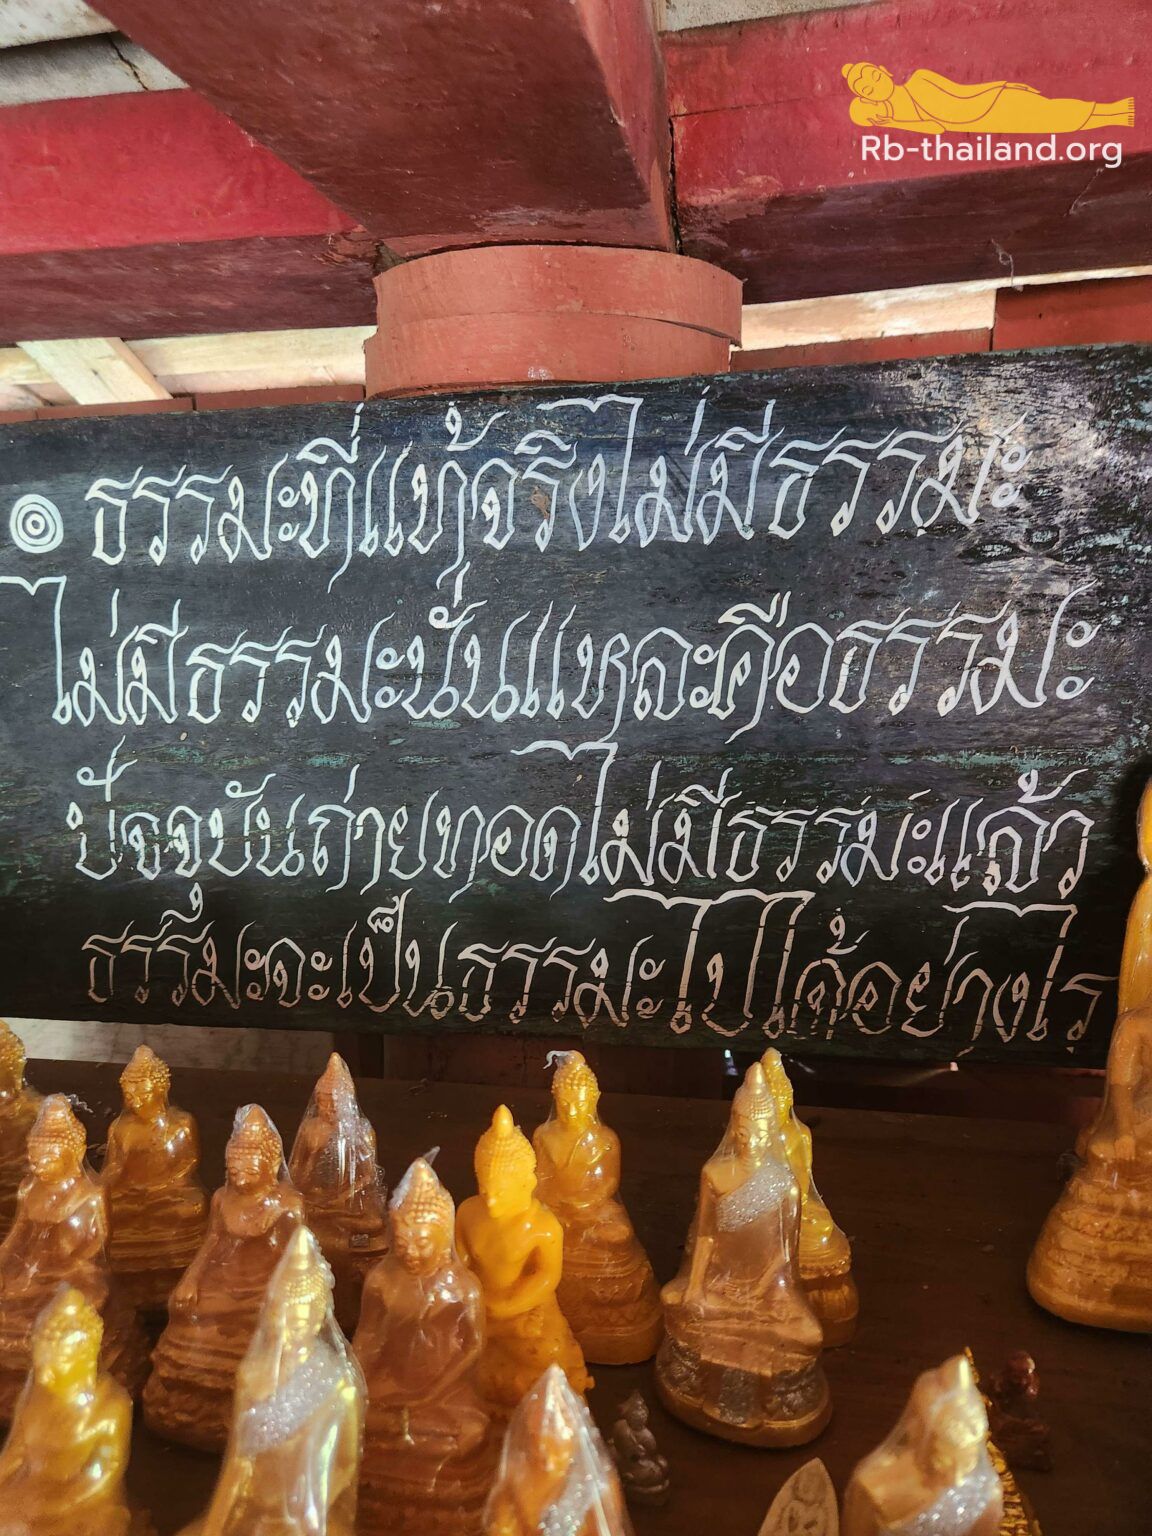 Rb-thailand.org
ธรรมะที่แท้จริงไม่มีธรรมะ
ไม่มีธรรมะนั่นแหละคือธรรมะ
ปัจจุบันถ่ายทอดไม่มีธรรมะแล้ว
ธรรมะจะเป็นธรรมะไปได้อย่างไร